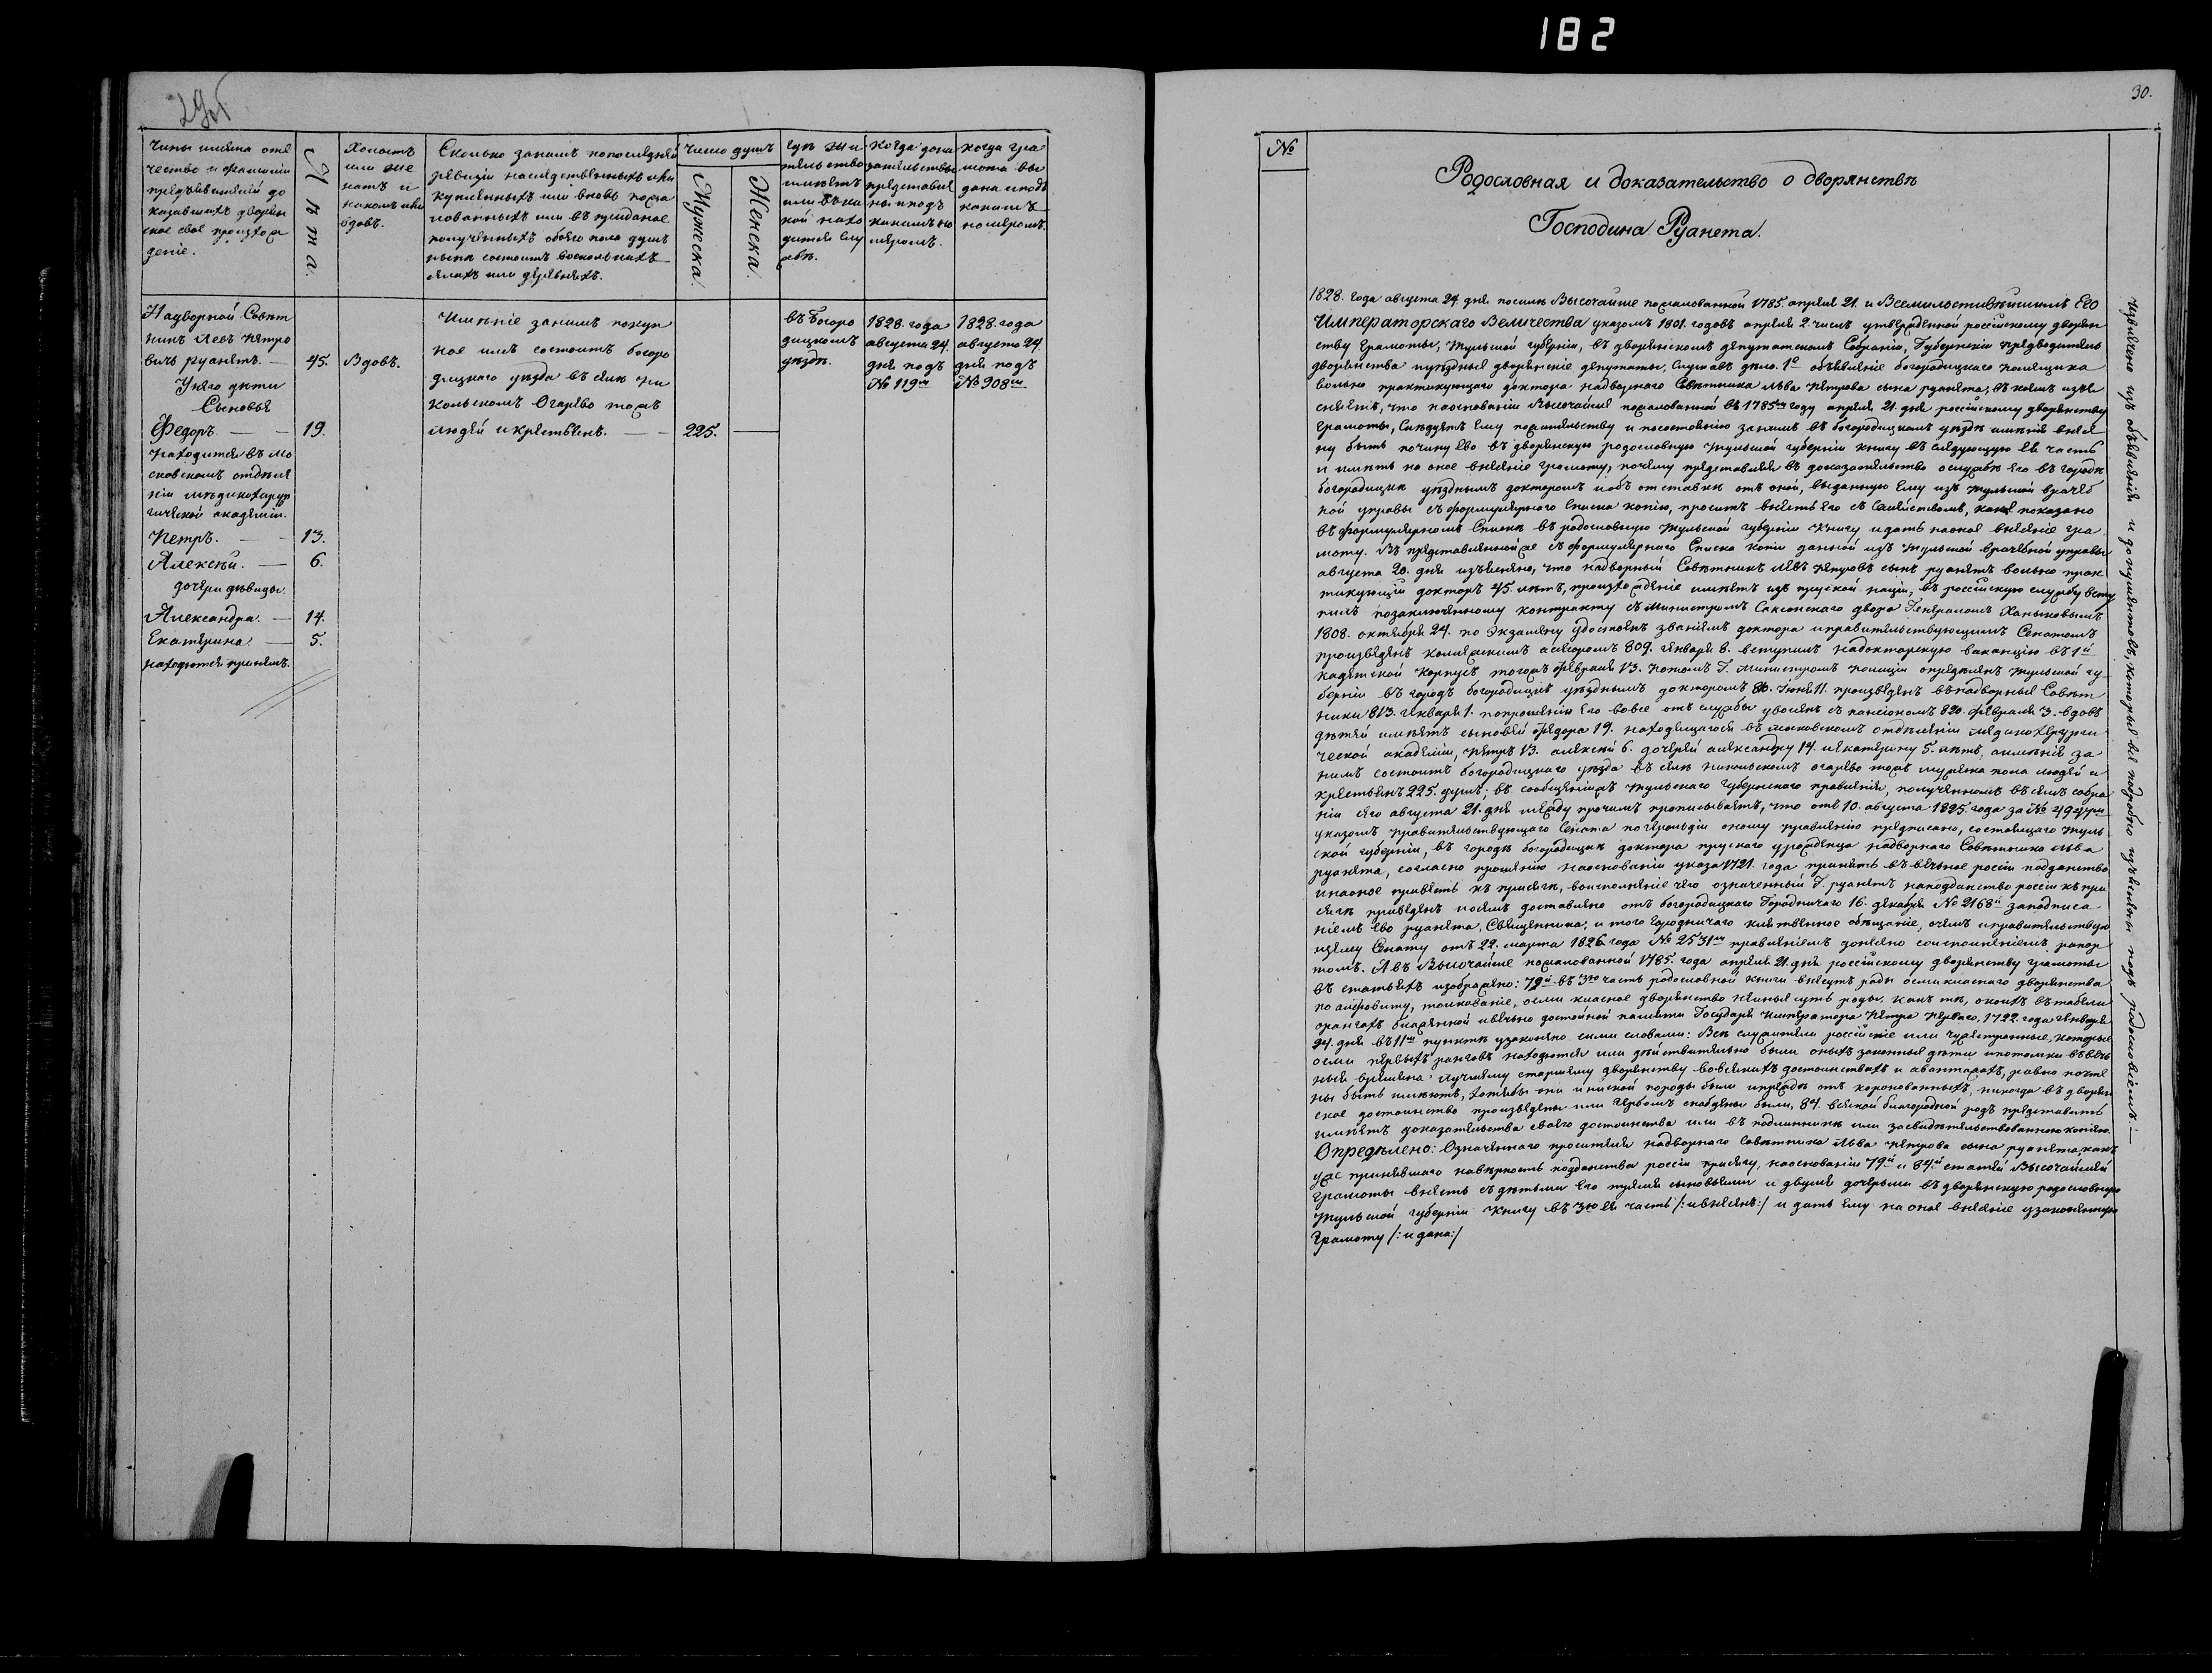 182
30.
Чины имена оте
чество и фамиліи
предъявителей до
казавшихъ дворян
ское свое происхож
деніе.
Лѣта.
Холостъ
или же
натъ и
накомъ или
вдовъ.
Сколько занимъ попоследней
ревизіи наследственныхъ или
купленныхъ или вновь пожа
лованныхъ или въ приданое
полученныхъ обоего пола душъ
ныне состоитъ восколькихъ
селахъ или деревняхъ.
число душъ
Мужеска.
Женска.
Гдѣ жи
тельство
имеетъ
или въ ка
кой нахо
дится слу
жбѣ.
Когда дока
зательствы
представле
ны и подъ
какимъ но
меромъ.
Когда гра
мота вы
дана и подъ
какимъ
номеромъ.
Надворной Совѣт
никъ Левъ Петро
вичъ руанетъ. — 45. Вдовъ.
Унего дѣти
Сыновья
Федоръ — 19.
находится въ мо
сковскомъ отделе
ніи медикохирур
гической академіи.
Петръ. — 13.
Алексѣй. — 6.
дочери дѣвицы.
Александра. — 14.
Екатерина — 5.
находятся принемъ.
Имѣніе занимъ покуп
ное имъ состоитъ богоро
дицкаго уѣзда въ селѣ ни
кольскомъ Огарево тожъ
людей и крестьянъ. — 225. —
въ Богоро
дицкомъ
уѣздѣ.
1828. года
августа 24.
дня подъ
№ 119м
1828. года
августа 24
дня подъ
№ 908м
№
Родословная и доказательство о дворянствѣ
Господина Руанета.
1828. года августа 24. дня посилѣ Высочайше пожалованной 1785. апреля 21. и Всемилостивѣйшимъ Его
Императорскаго Величества указомъ 1801. годовъ апреля 2. числъ утвержденной россійскому дворян
ству Грамоты, Тульской губерніи, въ дворянскомъ депутатскомъ Собраніи, Губернскій предводитель
дворянства и уѣздныя дворянскіе депутаты, слушавъ дѣло. 1е объявленіе богородицкаго помещика
вольно практикующаго доктора надворнаго Совѣтника льва петрова сына руанета, въ коемъ изъя
сняетъ, что наоснованіи Высочайше пожалованной въ 1785м году апреля 21. дня россійскому дворянству
грамоты, следуетъ ему пожительству и посостоянію занимъ въ богородицкомъ уѣздѣ именія внесе
ну быть почину ево въ дворянскую родословную Тульской губерніи книгу въ следующую ея часть
и иметь на оное внесеніе грамоту, почему представляя въ доказательство ослужбѣ его въ городѣ
богородицкѣ уѣзднымъ докторомъ и объ отставкѣ отъ оной, выданную ему изъ тульской врачеб
ной управы съ формулярнаго списка копію, проситъ внесть его съ семействомъ, какое показано
въ формулярномъ спискѣ въ родословную Тульской губерніи Книгу и дать наоное внесеніе гра
моту. Въ представленной же съ формулярнаго Списка копіи данной изъ тульской врачебной управы
августа 20. дня изъяснено, что надворный Совѣтникъ левъ петровъ сынъ руанетъ вольно прак
тикующій докторъ 45. лѣтъ, происхожденіе имеетъ изъ пруской націи, въ россійскую службу всту
пилъ позаключенному контракту съ Министромъ Саксонскаго двора Генераломъ Ханыковымъ
1808. октября 24. по Экзамену удостоенъ званіемъ доктора и правительствующимъ Сенатомъ
произведенъ колежскимъ асесоромъ 809. генваря 8. вступилъ надокторскую ваканцію въ 1й
кадетской корпусъ тогожъ февраля 13. потомъ Г. Министромъ полиціи определенъ Тульской гу
берніи въ городъ богородицкъ уѣзднымъ докторомъ июня 11. произведенъ внадворныя Совѣт
ники 813. генваря 1. попрошенію его вовсе отъ службы уволенъ съ пансіономъ 820. февраля 3. вдовъ
дѣтей имеетъ сыновей федора 19. находящагося въ московскомъ отделеніи медикохирурги
ческой академіи, петръ 13. алексѣй 6. дочерей александру 14. и екатерину 5. лѣтъ, аименія за
нимъ состоитъ богородицкаго уѣзда въ селѣ никольскомъ огарево тожъ мужеска пола людей и
крестьянъ 225. душъ; въ сообщеніижъ Тульскаго Губернскаго правленія, полученномъ въ семъ собра
ніи сего августа 21. дня между прочимъ прописываетъ, что отъ 10. августа 1825. года за №
указомъ правительствующаго Сената погерольдіи оному правленію предписано, состоящаго туль
ской губерніи, въ городѣ богородицкѣ доктора прускаго урожденца надворнаго Совѣтника льва
руанета, согласно прошенію наоснованіи указа 1721. года принять въ вечное россіи подданство
инаоное привесть къ присяге, воисполненіе чего означенный Г. руанетъ наподданство россіи къ при
сягѣ приведенъ и оемъ доставлено отъ богородицкаго Городничаго 16. декабря № 2168м заподписа
ніемъ ево руанета, Священника, и того Городничаго клятвенное обещаніе, очемъ и правительствую
щему Сенату отъ 22. марта 1826. года № 2531м правленіемъ донесено соисполненіемъ рапор
томъ. А въ Высочайше пожалованной 1785. года апреля 21. дня россійскому дворянству грамоты
въ статьяхъ изображено: 79й въ 3ю часть родословной книги внесутъ роды осмикласнаго дворянства
по алфавиту, толкованіе, осми класное дворянство неиныя суть роды, какъ тѣ, окоихъ въ табели
орангахъ блаженной и вечно достойной памяти Государя Императора Петра Перваго, 1722. года генваря
24. дня въ 11м пунктѣ узаконено сими словами: Всѣ служители россійскіе или чужестранные, которые
осми первыхъ ранговъ находятся или действительно были оныхъ законныя дѣти ипотомки въвеч
ныя времяна лучшему старшему дворянству вовсякихъ достоинствахъ и авантажахъ, равно почте
ны быть имеютъ, хотябы они и ниской породы были ипрежде отъ коронованныхъ, никогда въ дворян
ское достоинство произведены или гербомъ снабдены были, 84. всякой благородной родъ представить
имеетъ доказательства своего достоинства или въ подлинникѣ или засвидѣтельствованною копіею.
Определено: Означеннаго просителя надворнаго совѣтника льва петрова сына руанета, какъ
уже принявшаго навѣрность подданства россіи присягу, наоснованіи 79й и 84й статей Высочайшей
грамоты внесть съ дѣтьми его тремя сыновьями и двумя дочерьми въ дворянскую родословную
Тульской губерніи Книгу въ 3ю ея часть /:ивнесенъ:/ и дать ему на оное внесеніе узаконенную
грамоту /:и дана:/
Извлечено изъ объявленія и документовъ, которые все подробно изъяснены подъ родословіемъ.—